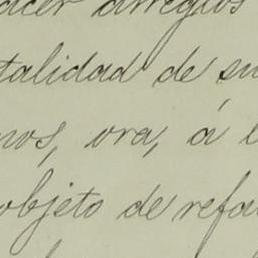 acer arreglos
talidad de su
nos, ora, á l
objeto de refa